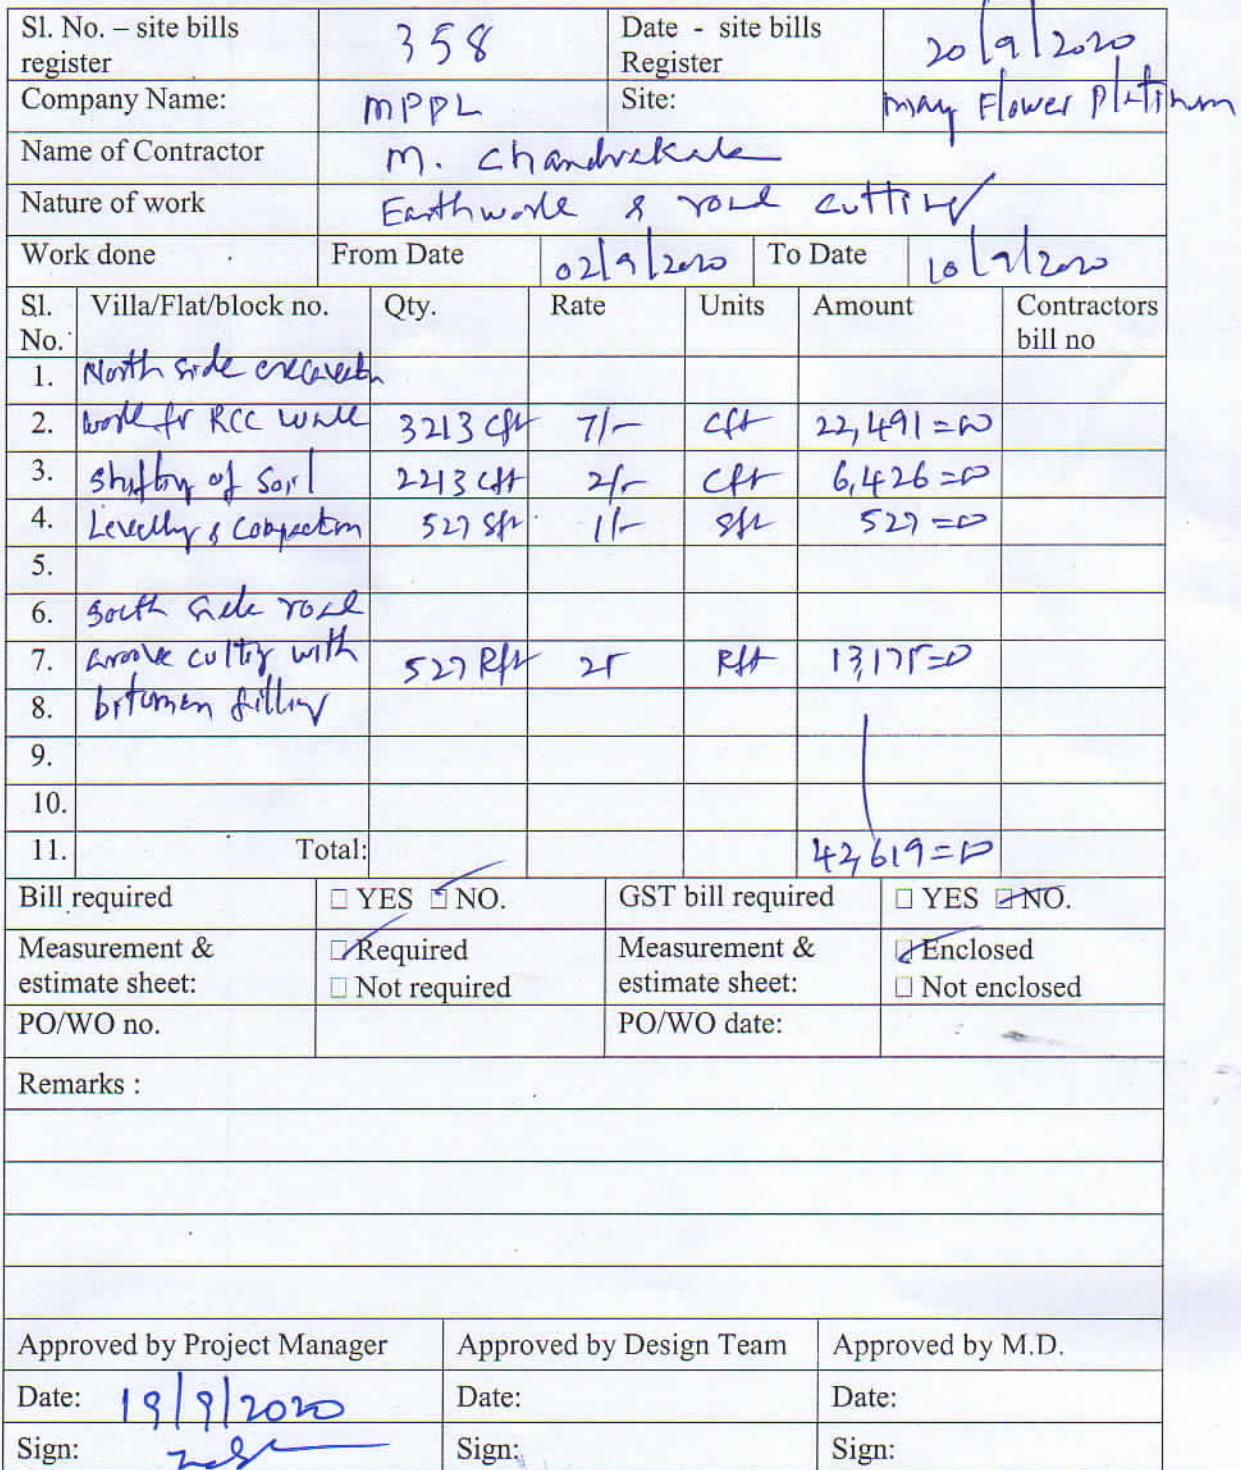 Sl. No. – site bills register 358 Date - site bills Register 20/9/2020
Company Name: MPPL Site: may Flower Platinum
Name of Contractor M. Chandrakala
Nature of work Earthwork & road cutting
Work done From Date 02/9/2020 To Date 10/9/2020
Sl. No. Villa/Flat/block no. Qty. Rate Units Amount Contractors bill no
1. North side excavatn
2. work for RCC wall 3213 cft 7/- cft 22,491=00
3. Shifting of Soil 2213 cft 2/- cft 6,426=00
4. Levelling & compaction 527 sft 1/- sft 527=00
5.
6. South side road
7. Groove cutting with 527 Rft 25 Rft 13,175=0
8. bitumen filling
9.
10.
11. Total: 42,619=00
Bill required □ YES □ NO. GST bill required □ YES □ NO.
Measurement & estimate sheet: □ Required □ Not required Measurement & estimate sheet: □ Enclosed □ Not enclosed
PO/WO no. PO/WO date:
Remarks :
Approved by Project Manager Approved by Design Team Approved by M.D.
Date: 19/9/2020 Date: Date:
Sign: Sign: Sign: